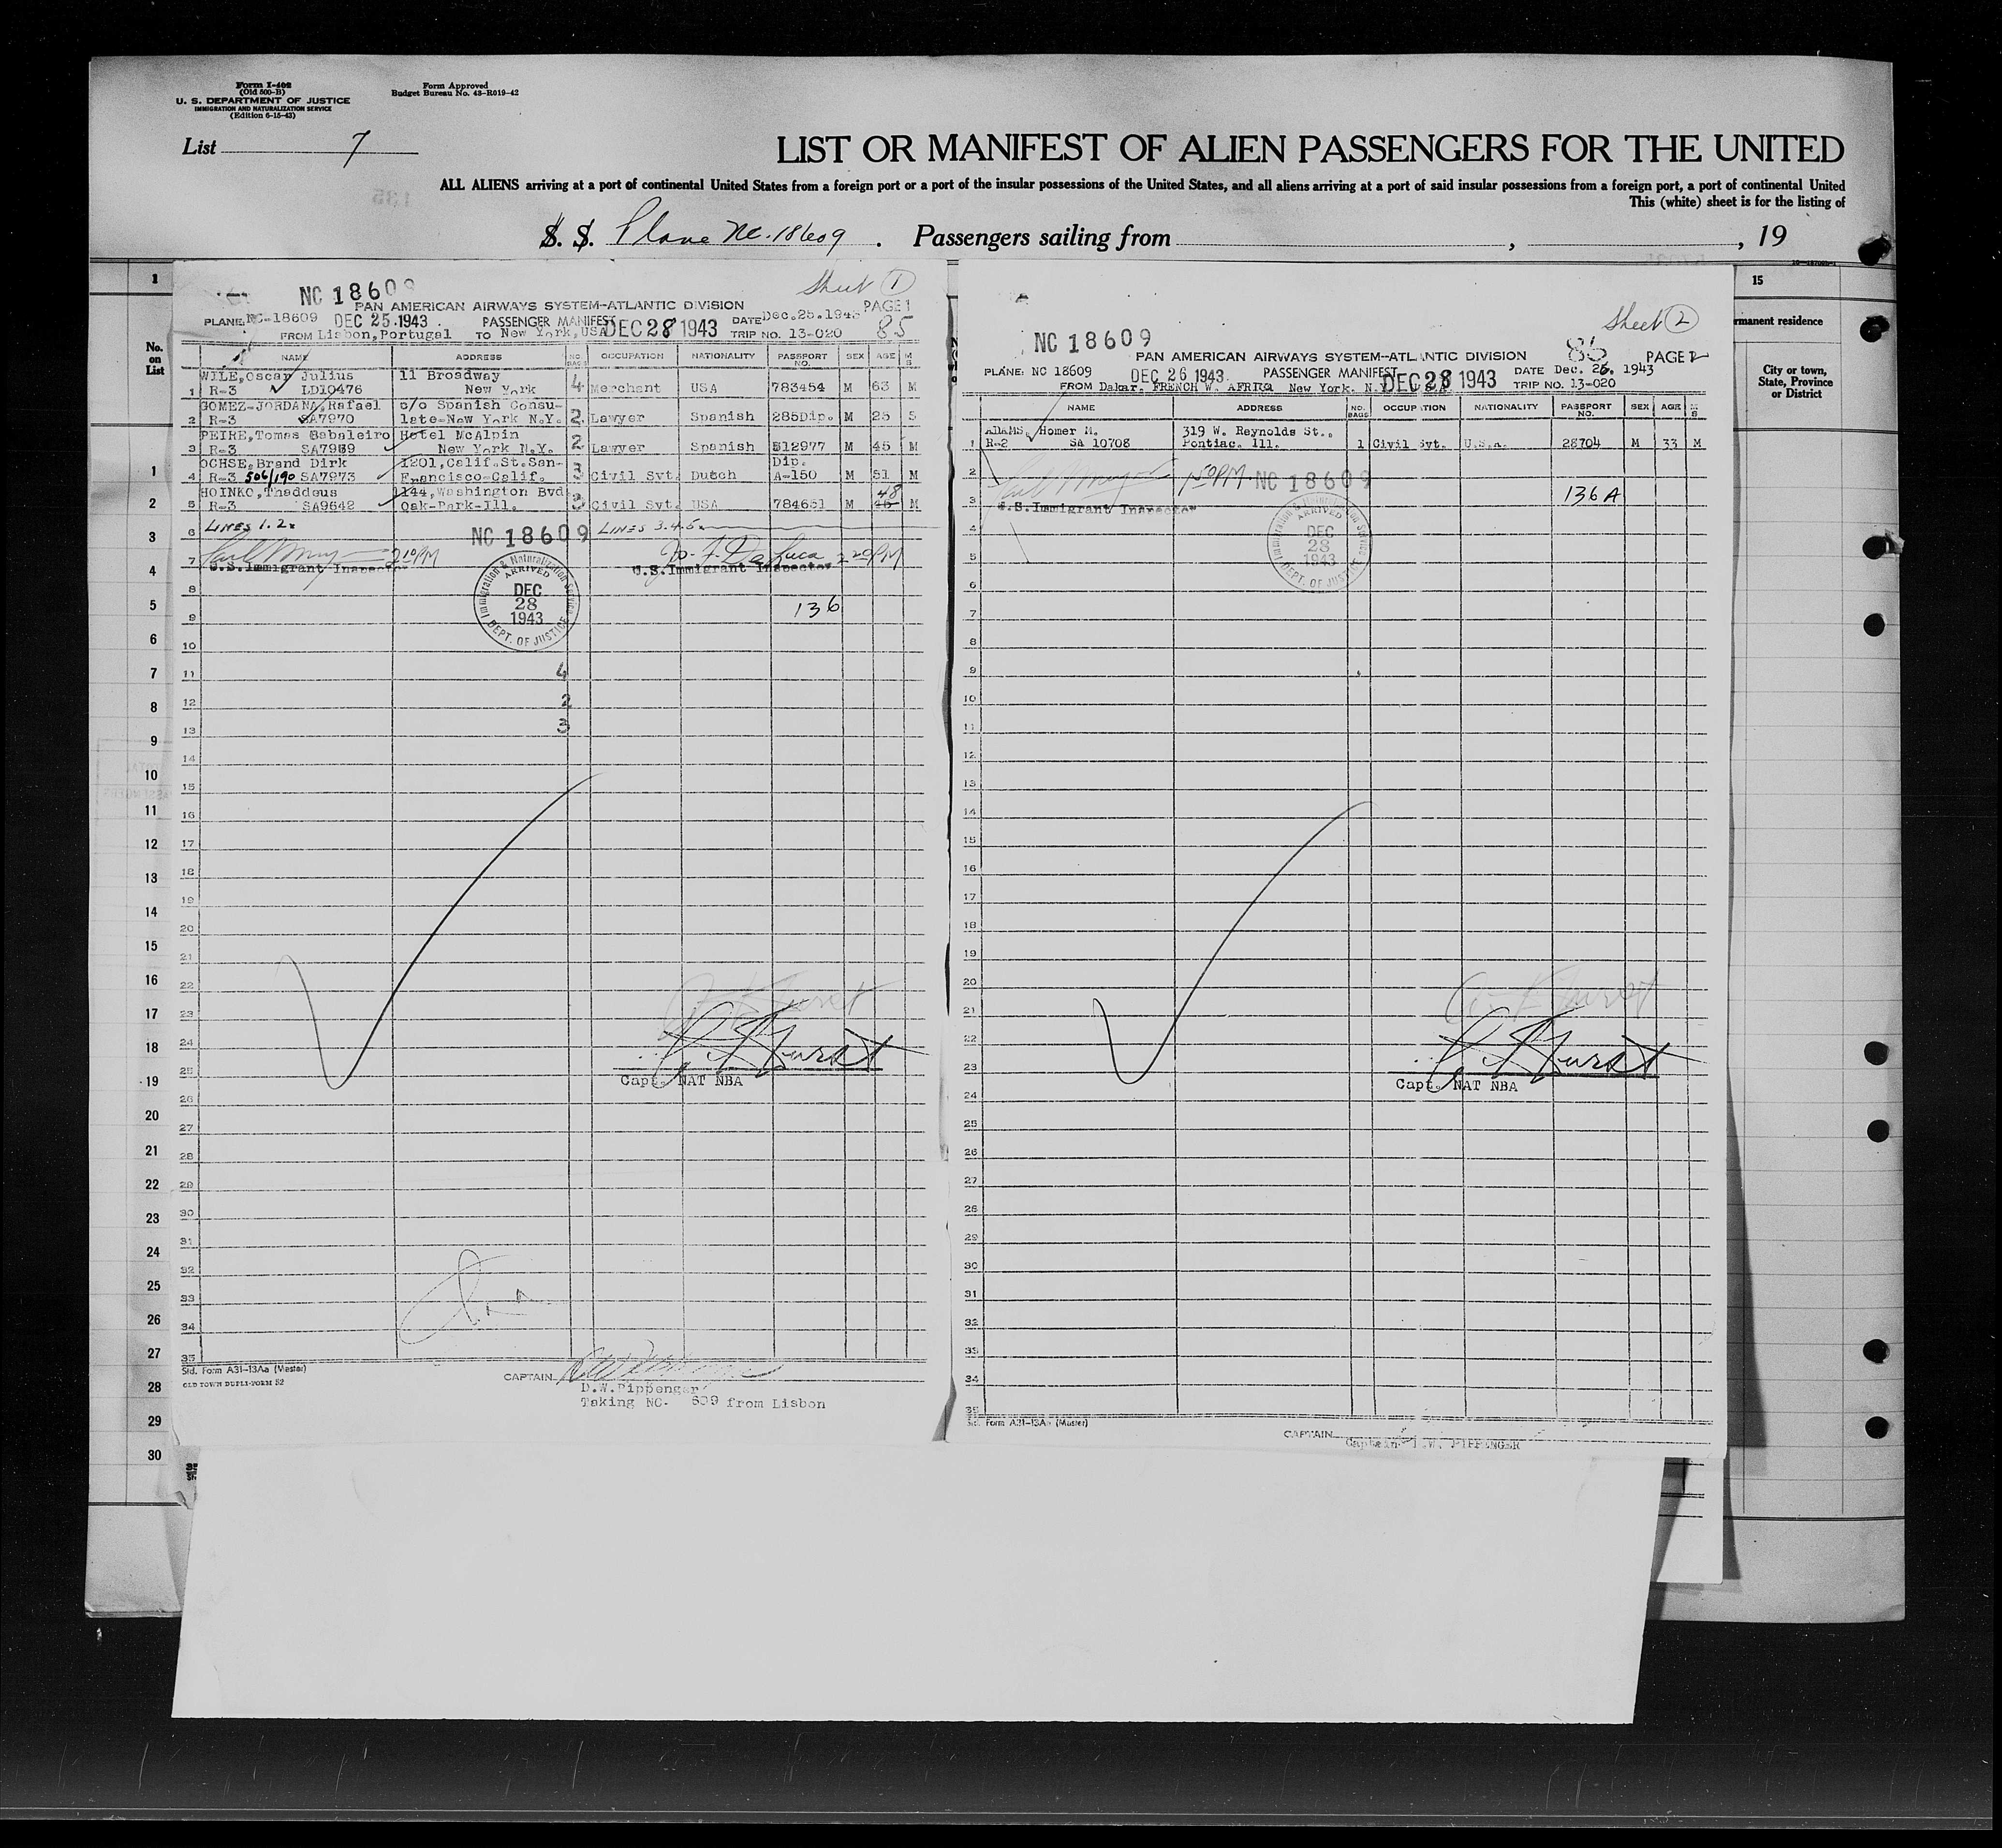 Form I-402
(Old 500-B)
U. S. DEPARTMENT OF JUSTICE
IMMIGRATION AND NATURALIZATION SERVICE
(Edition 6-15-43)
Form Approved
Budget Bureau No. 43-R019-42
List 7
LIST OR MANIFEST OF ALIEN PASSENGERS FOR THE UNITED
ALL ALIENS arriving at a port of continental United States from a foreign port or a port of the insular possessions of the United States, and all aliens arriving at a port of said insular possessions from a foreign port, a port of continental United
This (white) sheet is for the listing of
S. S. Plane NC-18609 . Passengers sailing from , , 19
1
No.
on
List
1
2
3
4
5
6
7
8
9
10
11
12
13
14
15
16
17
18
19
20
21
22
23
24
25
26
27
28
29
30
Sheet 1
NC 18609
PAN AMERICAN AIRWAYS SYSTEM-ATLANTIC DIVISION PAGE 1
PLANE: NC-18609 DEC 25.1943 . PASSENGER MANIFEST DEC 28 1943 DATE Dec.25.1943 85
FROM Lisbon,Portugal TO New York,USA TRIP NO. 13-020
NAME ADDRESS NO. BAGS OCCUPATION NATIONALITY PASSPORT NO. SEX AGE M S
WILE,Oscar Julius 11 Broadway
1 R-3 LD10476 New York 4 Merchant USA 783454 M 63 M
GOMEZ-JORDANA,Rafael c/o Spanish Consu-
2 R-3 SA7970 late-New York N.Y. 2 Lawyer Spanish 285Dip. M 25 S
PEIRE,Tomas Cabaleiro Hotel McAlpin
3 R-3 SA7969 New York N.Y. 2 Lawyer Spanish 512977 M 45 M
OCHSE,Brand Dirk 1201,Calif.St.San- Dip.
4 R-3 506/190 SA7973 Francisco-Calif. 3 Civil Svt. Dutch A-150 M 51 M
HOINKO,Thaddeus 1144,Washington Bvd 48
5 R-3 SA9642 Oak-Park-Ill. 3 Civil Svt. USA 784651 M M
6 LINES 1.2. NC 18609 LINES 3.4.5.
7 2 10 PM 2 20 PM
U.S.Immigrant Inspector U.S.Immigrant Inspector
Immigration & Naturalization Service
ARRIVED
DEC
28
1943
DEPT. OF JUSTICE
8
9 136
10
11 4
12 2
13 3
14
15
16
17
18
19
20
21
22
23
24
25
Capt. NAT NBA
26
27
28
29
30
31
32
33
34
35
Std. Form A31-13Aa (Master)
OLD TOWN DUPLI-FORM 52
CAPTAIN
D.W.Pippenger
Taking NC. 609 from Lisbon
Sheet 2
NC 18609
PAN AMERICAN AIRWAYS SYSTEM-ATLANTIC DIVISION 86 PAGE 2
PLANE: NC 18609 DEC 26 1943. PASSENGER MANIFEST DEC 28 1943 DATE Dec. 26. 1943
FROM Dakar. FRENCH W. AFRICA New York. N. TRIP NO. 13-020
NAME ADDRESS NO. BAGS OCCUPATION NATIONALITY PASSPORT NO. SEX AGE M S
ADAMS, Homer M. 319 W. Reynolds St.,
1 R-2 SA 10708 Pontiac. Ill. 1 Civil Svt. U.S.A. 28704 M 33 M
2 1 50 PM NC 18609
3 136A
U.S.Immigrant Inspector
Immigration & Naturalization Service
ARRIVED
DEC
28
1943
DEPT. OF JUSTICE
4
5
6
7
8
9
10
11
12
13
14
15
16
17
18
19
20
21
22
23
Capt. NAT NBA
24
25
26
27
28
29
30
31
32
33
34
35
Std. Form A31-13Aa (Master)
CAPTAIN
Captain D.W. PIPPENGER
15
rmanent residence
City or town,
State, Province
or District